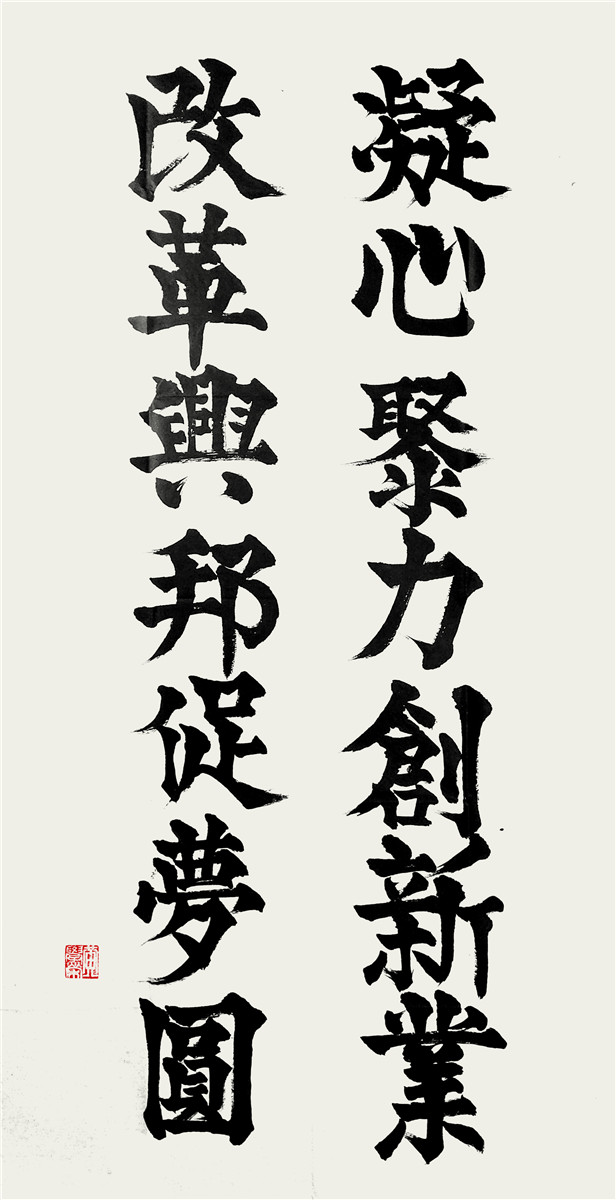 凝心聚力創新業
改革興邦促夢圓